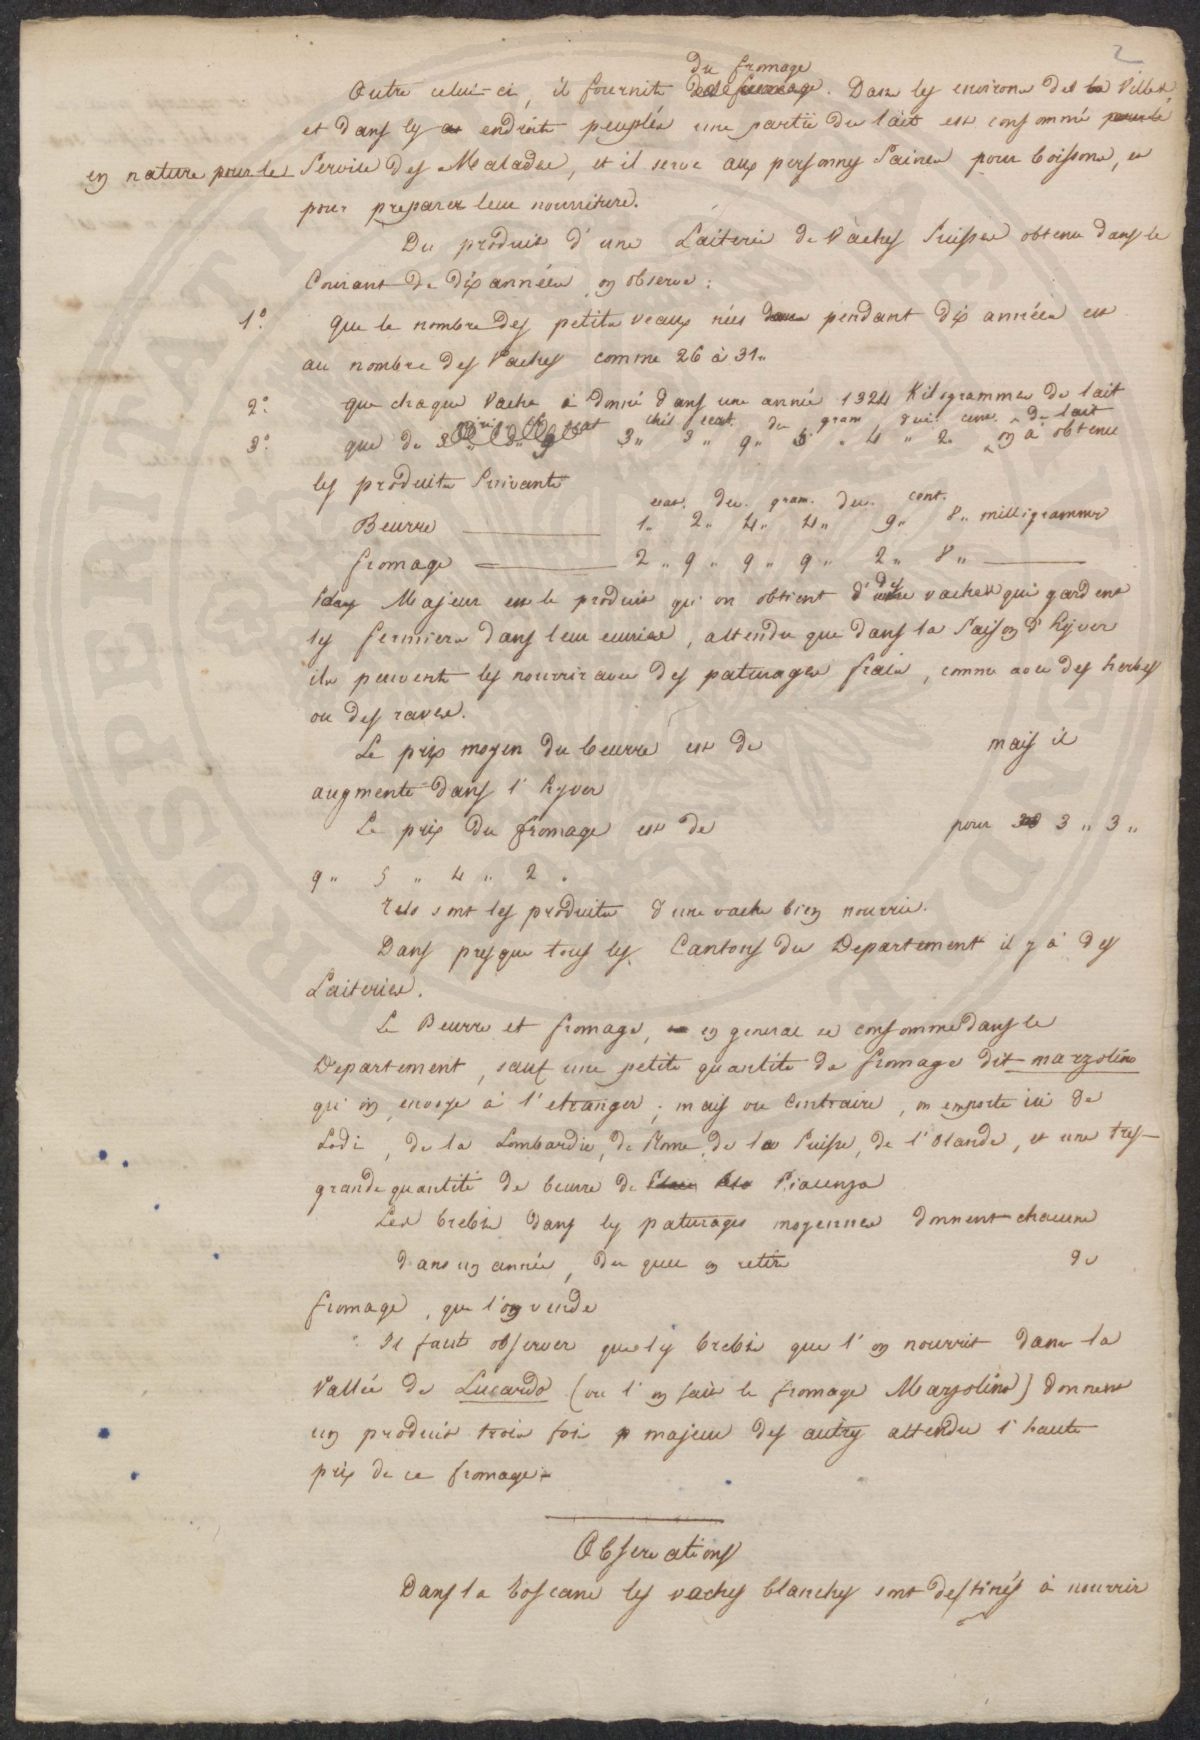 2
du fromage
Outre celui-ci, il fournit . Dans les environs des Villes
et dans les endroits peuplés une partie du lait est consommé
en nature pour le Service des Malades, et il serve aux personnes saines pour boissons, et
pour preparer leur nourriture.
Du produit d'une Laiterie de Vaches Suisses obtenu dans le
Courant de dix années on observe :
1.° que le nombre des petits veaux nées pendant dix années est
au nombre des Vaches comme 26 à 31.
2.° que chaque Vache a donné dans une année 1324 Kilogrammes de lait
3.° que de 3 „ 3 „ 9 „ 5 „ 4 „ 2 „ de lait on a obtenu
les produits Suivants
ecat. deu. gram. deci. cent.
Beurre 1 „ 2 „ 4 „ 4 „ 9 „ 8 „ milligrammes
fromage 2 „ 9 „ 9 „ 9 „ 2 „ 8 „
Majeur est le produit qu'on obtient des vaches qui gardent
les fermiers dans leur ecuries, attendu que dans la Saison d'hyver
ils peuvent les nourrir avec des paturages frais, comme avec des herbes
ou des raves.
Le prix moyen du beurre est de mais il
augmente dans l'hyver
Le prix du fromage est de pour 3 „ 3 „
9 „ 5 „ 4 „ 2 „
Tels sont les produits d'une vache bien nourrie.
Dans presque tous les Cantons du Departement il y à des
Laiteries.
Le Beurre et fromage, en general se consomme dans le
Departement, sauf une petite quantité de fromage dit marzolino
qu'on envoye à l'etranger ; mais au Contraire, on emporte ici de
Lodi, de la Lombardie, de Rome, de la Suisse, de l'Olande, et une tres-
grande quantité de beurre de Piacenza
Les brebis dans les paturages moyennes donnent chacune
dans un année, du quel on retire de
fromage, que l'on vende
Il faut observer que les brebis que l'on nourrit dans la
Vallée de Lucardo (ou l'on fait le fromage Marzolino) donnent
un produit trois fois majeur des autres attendu l'haute
prix de ce fromage.
Observations
Dans la Toscane les vaches blanches sont destinés à nourrir